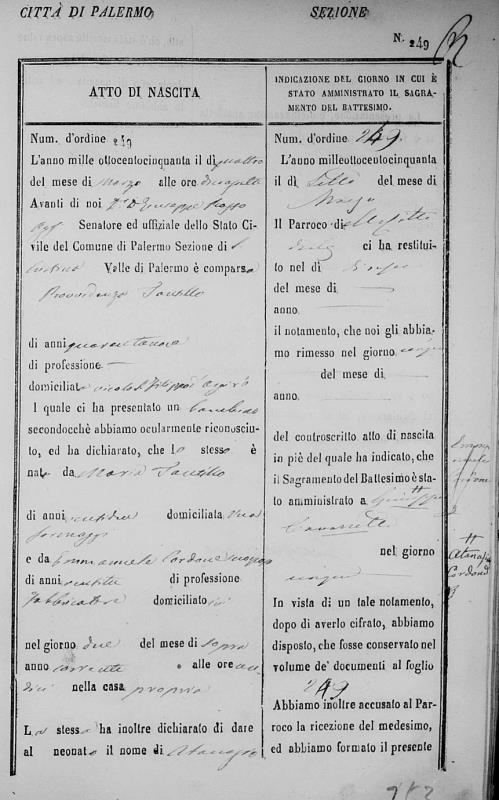 CITTÀ DI PALERMO SEZIONE
N. 249
ATTO DI NASCITA
Num. d'ordine 249
L'anno mille ottocentocinquanta il dì quattro
del mese di Marzo alle ore
Avanti di noi Dn Giuseppe
Senatore ed uffiziale dello Stato Ci-
vile del Comune di Palermo Sezione di
Valle di Palermo è comparsa
Provvidenza Santillo
di anni quarantanove
di professione —
domiciliata vicolo
l quale ci ha presentato un bambino
secondocchè abbiamo ocularmente riconosciu-
to, ed ha dichiarato, che lo stesso è
nato da Maria Santillo
di anni ventidue domiciliata
e da Emmanuele Cordone
di anni di professione
Fabbricatore domiciliato ivi
nel giorno due del mese di sopra
anno corrente alle ore un-
dici nella casa propria
Lo stesso ha inoltre dichiarato di dare
al neonato il nome di Atanagio
INDICAZIONE DEL GIORNO IN CUI È
STATO AMMINISTRATO IL SAGRA-
MENTO DEL BATTESIMO.
Num. d'ordine 249.
L'anno milleottocentocinquanta
il dì Sette del mese di
Marzo
Il Parroco di
ci ha restitui-
to nel dì
del mese di —
anno —
il notamento, che noi gli abbia-
mo rimesso nel giorno cinque
del mese di —
anno —
del controscritto atto di nascita
in piè del quale ha indicato, che
il Sagramento del Battesimo è sta-
to amministrato a Giuseppe
nel giorno
cinque
In vista di un tale notamento,
dopo di averlo cifrato, abbiamo
disposto, che fosse conservato nel
volume de' documenti al foglio
249
Abbiamo inoltre accusato al Par-
roco la ricezione del medesimo,
ed abbiamo formato il presente
Cordone